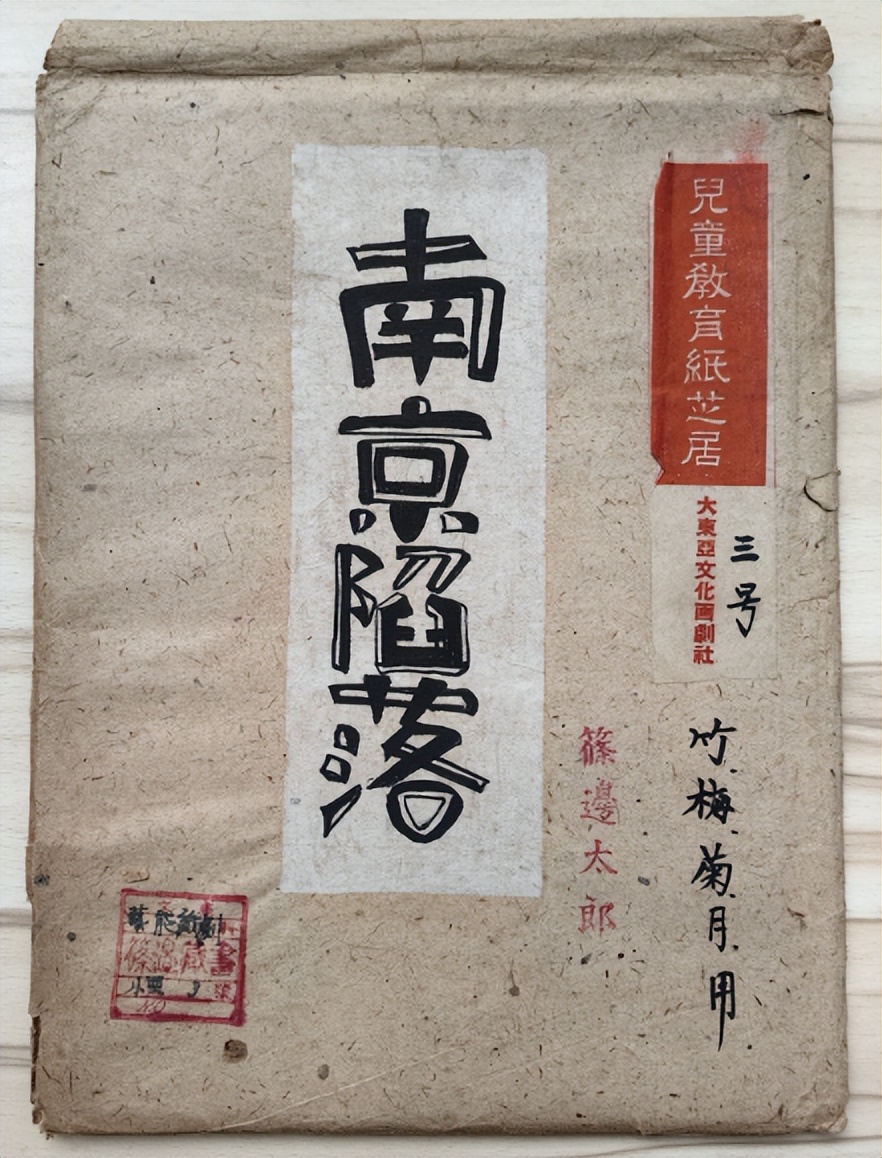 兒童敎育紙芝居
大東亞文化画劇社
三号
竹、梅、菊、月、用
篠邊太郎
南京陥落
篠邉蔵書